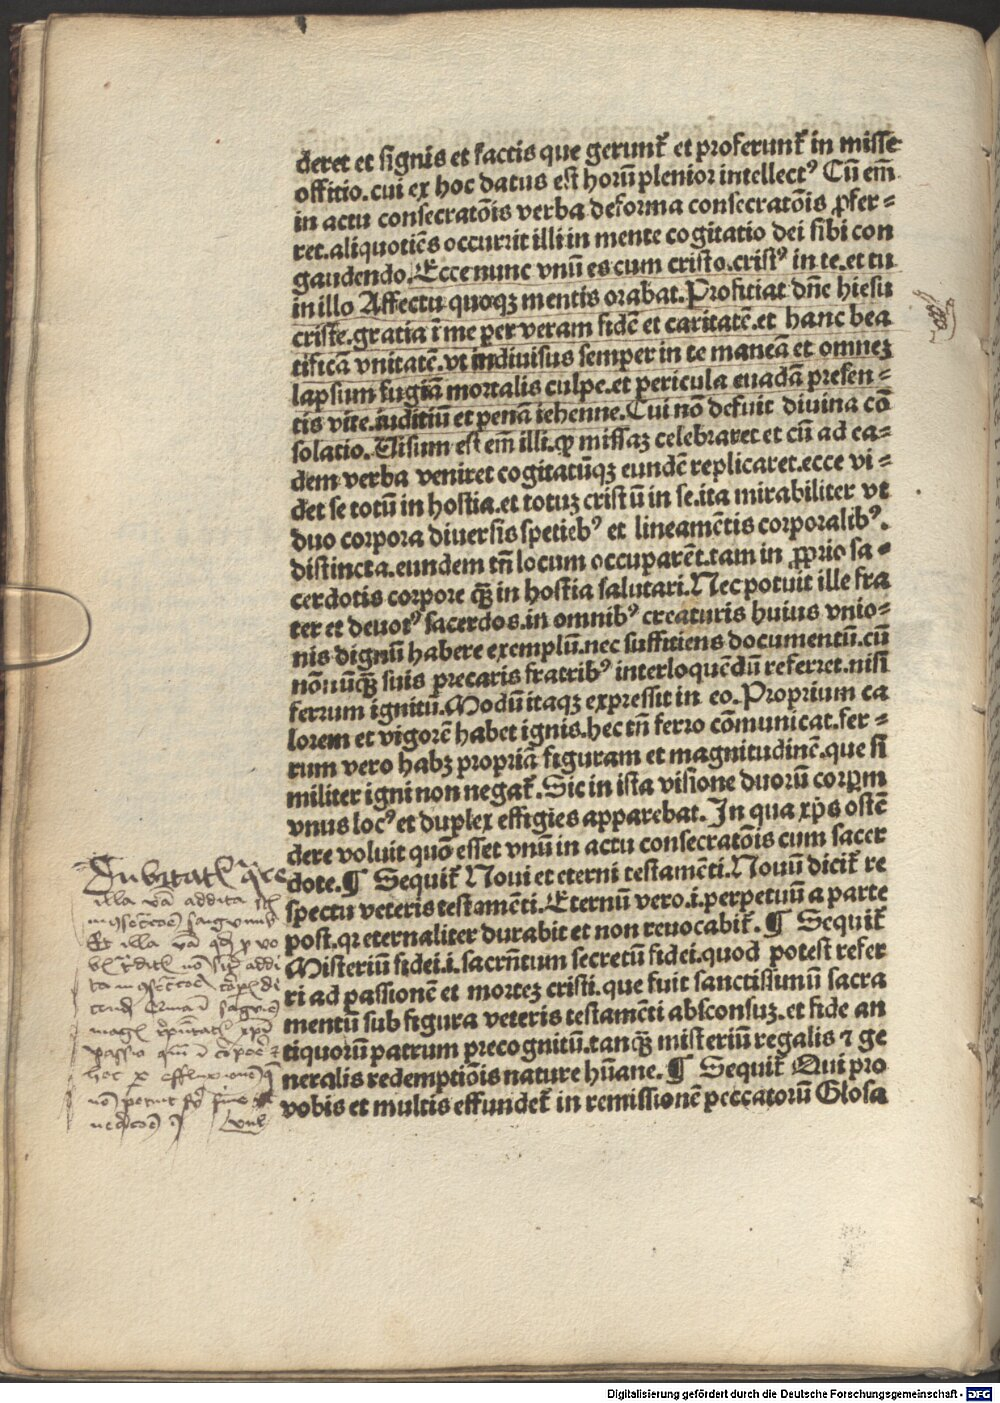 deret et signis et factis que gerunt᷑ et proferunt᷑ in misse
offitio.cui ex hoc datus est horū plenior intellectꝰ Cū em̄
in actu consecratōis verba de forma consecratōis ꝓfer⸗
ret.aliquotiēs occurrit illi in mente cogitatio dei sibi con
gaudendo.Ecce nunc vnū es cum cristo.cristꝰ in te.et tu
in illo Affectu quoqꝫ mentis orabat.Profitiat dn̄e hiesu
criste.gratia ī me per veram fidē et caritatē.et hanc bea
tificā vnitatē.vt indiuisus semper in te maneā et omneꝫ
lapsum fugiā mortalis culpe.et pericula euadā presen⸗
tis vite.iuditiū et penā iehenne.Cui nō defuit diuina cō
solatio.Uisum est em̄ illi.ꝙ missaꝫ celebraret et cū ad ea⸗
dem verba veniret cogitatūqꝫ eundē replicaret.ecce vi⸗
det se totū in hostia.et totuꝫ cristū in se.ita mirabiliter vt
duo corpora diuersis spetiebꝰ et lineamētis corporalibꝰ.
distincta.eundem tn̄ locum occuparēt.tam in ꝓprio sa⸗
cerdotis corpore qꝫ̄ in hostia salutari.Nec potuit ille fra
ter et deuotꝰ sacerdos.in omnibꝰ creaturis huius vnio⸗
nis dignū habere exemplū.nec suffitiens documentū.cū
nōnūqꝫ̄ suis precaris fratribꝰ interloquēdū referret.nisi
ferrum ignitū.Modū itaqꝫ expressit in eo.Proprium ca
lorem et vigorē habet ignis.hec tn̄ ferro cōmunicat.fer⸗
rum vero habꝫ propriā figuram et magnitudinē.que si
militer igni non negat᷑.Sic in ista visione duorū corpꝝm
vnus locꝰ et duplex effigies apparebat.In qua xp̄s ostē
dere voluit quō esset vnū in actu consecratōis cum sacer
dote.¶ Sequit᷑ Noui et eterni testamēti.Nouū dicit᷑ re
spectu veteris testamēti.Eternū vero.i.perpetuū a parte
post.qꝛ eternaliter durabit et non reuocabit᷑.¶ Sequit᷑
Misteriū fidei.i.sacrn̄tum secretū fidei.quod potest refer
ri ad passionē et morteꝫ cristi.que fuit sanctissimū sacra
mentū sub figura veteris testamēti absconsuꝫ.et fide an
tiquorū patrum precognitū.tanqꝫ̄ misteriū regalis ⁊ ge
neralis redemptiōis nature hūane.¶ Sequit᷑ Qui pro
vobis et multis effundet᷑ in remissionē peccatorū Glosa
Dubitat᷑ q̄re
illa v̄ba addita
Et illa
passio
hoc
nō
Digitalisierung gefördert durch die Deutsche Forschungsgemeinschaft - DFG